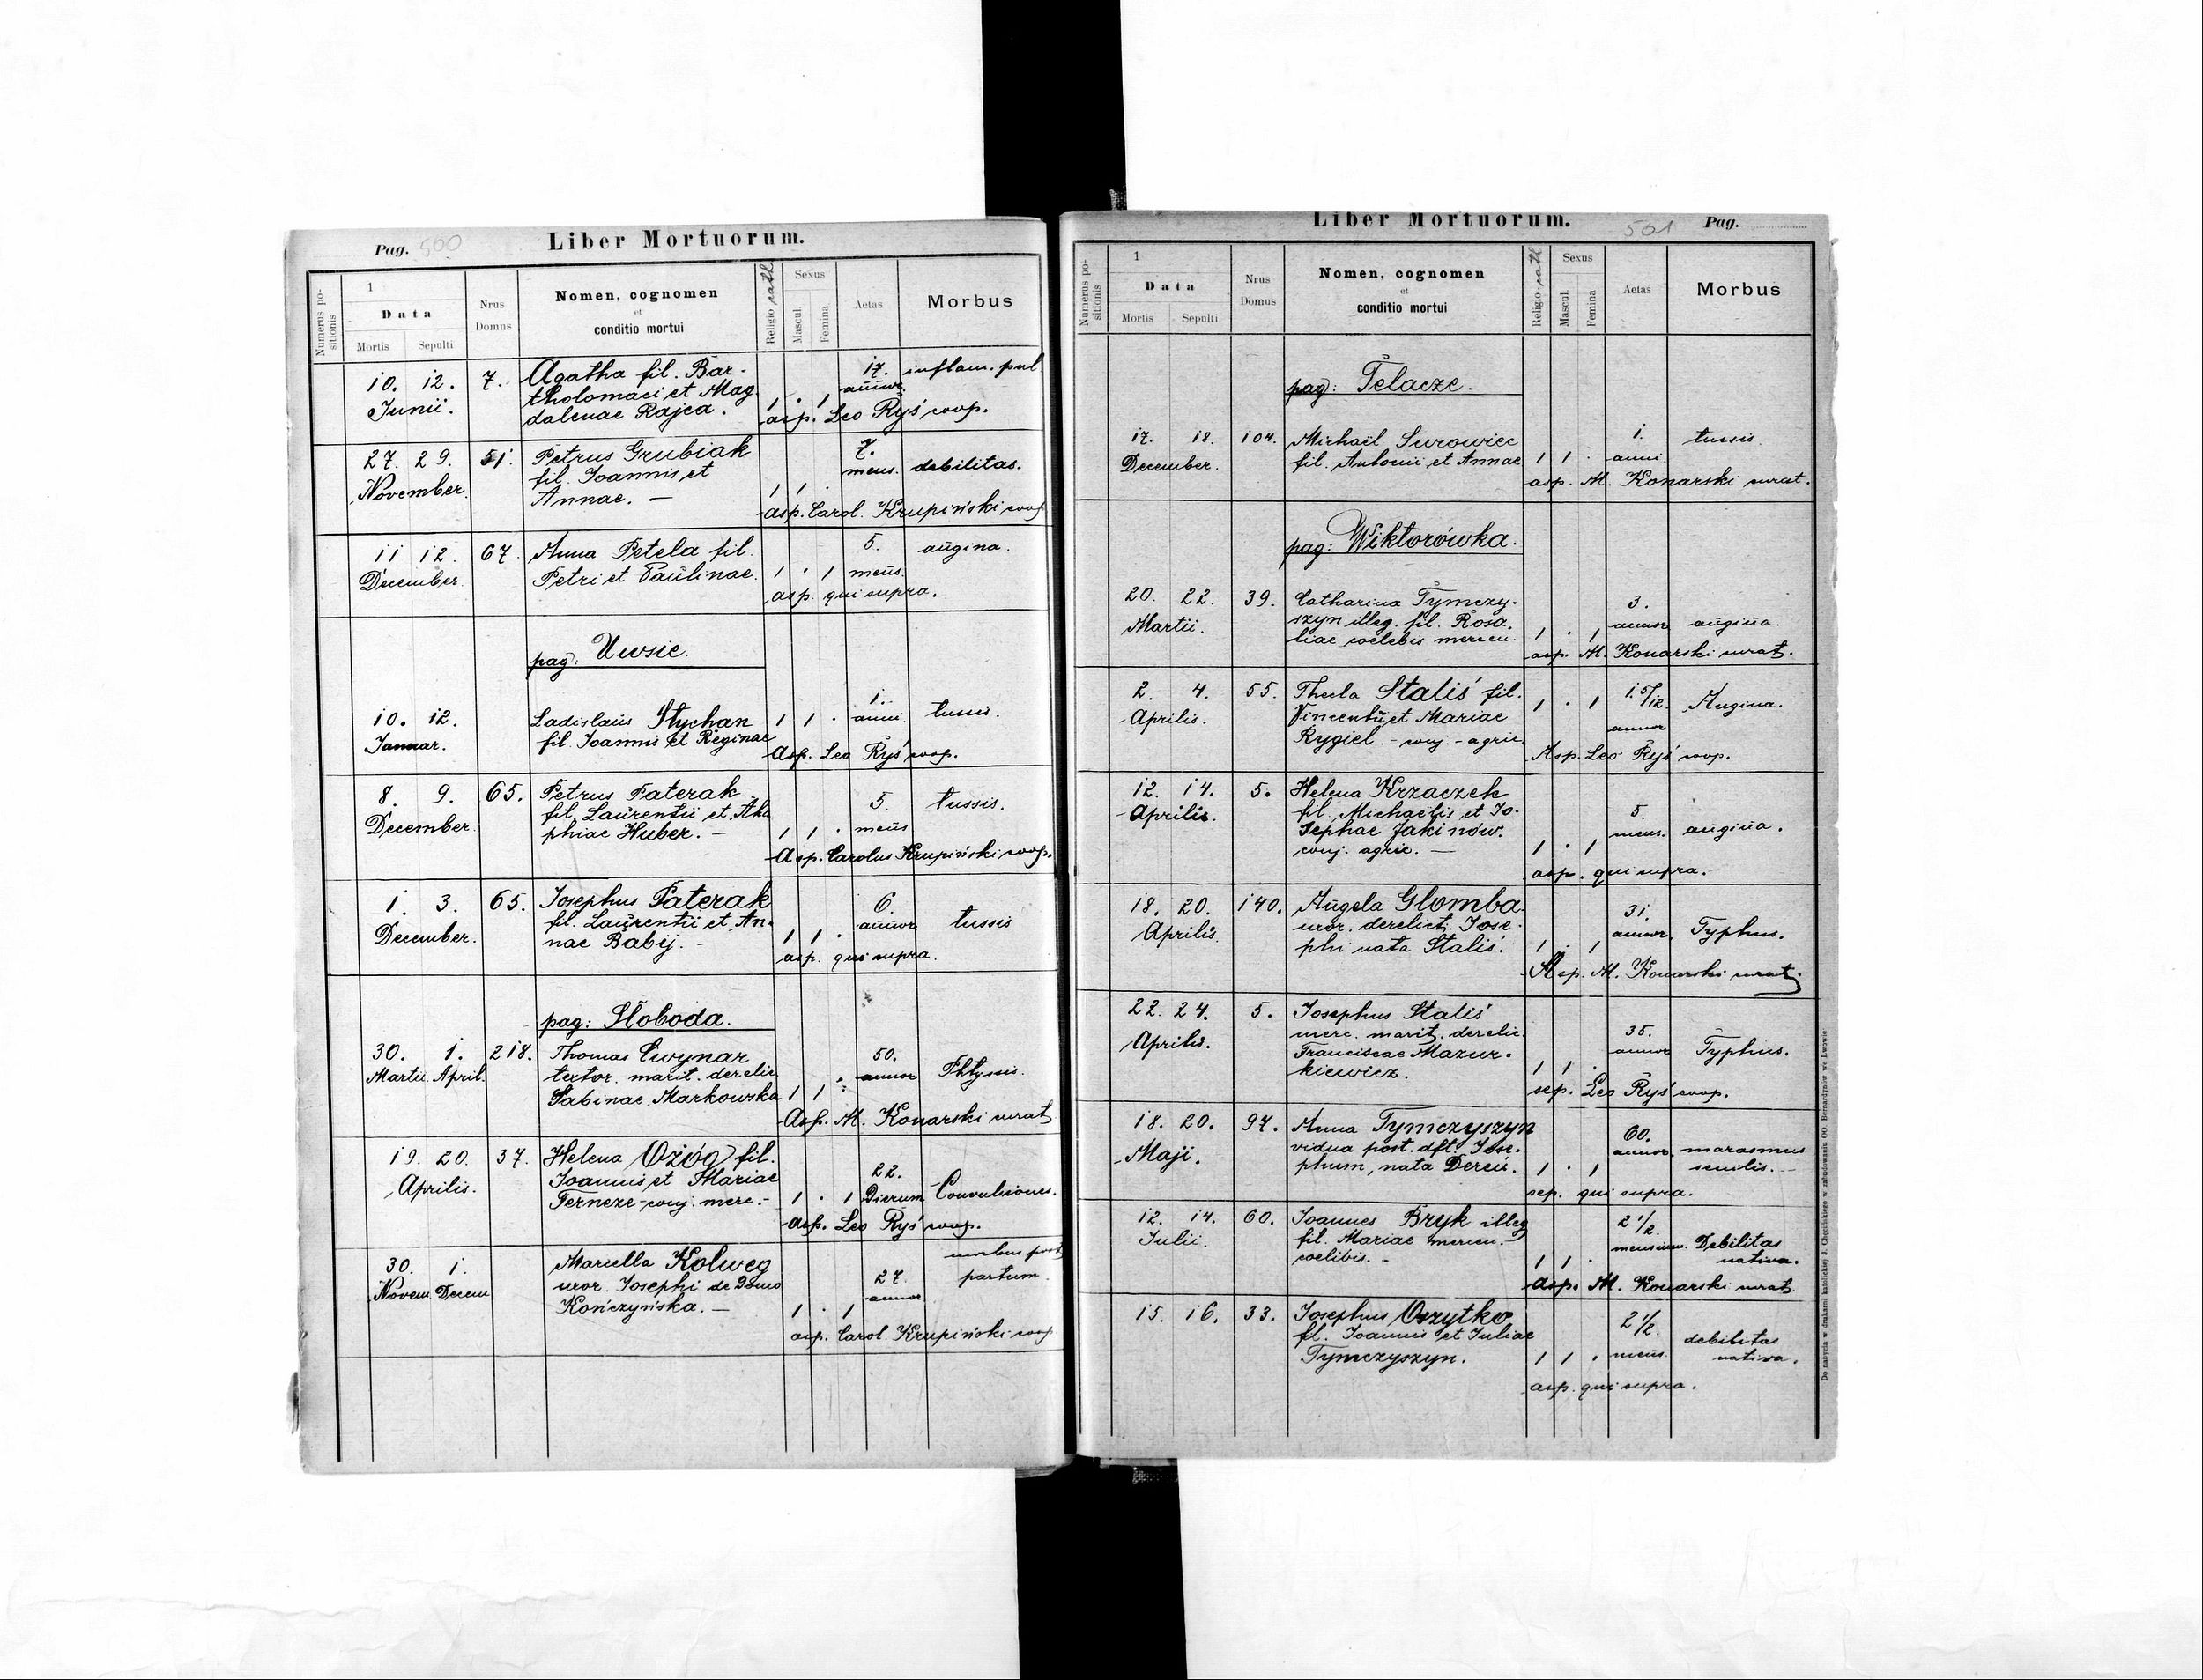 Pag. 500 Liber Mortuorum.
Numerus positionis
1
Data
Mortis Sepulti
Nrus Domus
Nomen, cognomen
et
conditio mortui
Religio cath
Sexus
Mascul. Femina
Aetas
Morbus
10. 12. 7. Agatha fil. Bar- 17. inflam. pul
Junii. tholomaei et Mag annor.
dalenae Rajca. 1 . 1
asp. Leo Ryś coop.
27. 29. 51. Petrus Grubiak 7.
November. fil. Joannis et mens. debilitas.
Annae. — 1 1 .
asp. Carol. Krupiński coop
11 12. 67. Anna Petela fil. 5. angina.
December. Petri et Paulinae. 1 . 1 mens.
asp. qui supra.
pag: Uwsie.
10. 12. Ladislaus Stychan 1 1 . 1. anni. tussis.
Januar. fil. Joannis et Reginae
Asp. Leo Ryś coop.
8. 9. 65. Petrus Paterak 5. tussis.
December. fil. Laurentii et Aha
phiae Huber. — 1 1 . mens
Asp. Carolus Krupiński coop.
1. 3. 65. Josephus Paterak 6.
December. fil. Laurentii et An- annor tussis
nae Babij. - 1 1 .
asp. qui supra.
pag: Słoboda.
30. 1. 218. Thomas Cwynar 50.
Martii. April. textor. marit. derelic annor Phtysis.
Sabinae Markowska 1 1 .
Asp. M. Konarski curat
19. 20. 37. Helena Ożóg fil.
Aprilis. Joannis et Mariae 22.
Terneze - conj. merc. - 1 . 1 Dierum Convulsiones.
asp. Leo Ryś coop.
30. 1. Marcella Kolweg morbus post
Novem. Decem uxor. Josephi de Domo 27. partum.
Kończyńska. — 1 . 1 annor
asp. Carol. Krupiński coop
Liber Mortuorum. 501 Pag.
Numerus positionis
1
Data
Mortis Sepulti
Nrus Domus
Nomen, cognomen
et
conditio mortui
Religio cath
Sexus
Mascul. Femina
Aetas
Morbus
pag: Telacze.
17. 18. 104. Michaël Surowiec 1. tussis.
December. fil. Antonii et Annae 1 1 . anni.
asp. M. Konarski curat.
pag: Wiktorówka.
20. 22. 39. Catharina Tymczy- 3.
Martii. szyn illeg. fil. Rosa- annor angina.
liae coelebis mercen. 1 . 1
asp. M. Konarski curat.
2. 4. 55. Thecla Staliś fil. 1 . 1 1. 5/12. Angina.
Aprilis. Vincentii et Mariae annor
Rygiel. - conj. - agric.
Asp. Leo Ryś coop.
12. 14. 5. Helena Krzaczek
Aprilis. fil. Michaëlis et Jo- 5.
sephae Jakinów. mens. angina.
conj. agric. — 1 . 1
asp. qui supra.
18. 20. 140. Angela Glomba 31.
Aprilis. uxor. derelict. Jose- annor. Typhus.
phi nata Staliś. 1 . 1
Asp. M. Konarski curat.
22. 24. 5. Josephus Staliś
Aprilis. merc. marit. derelic. 35.
Franciscae Mazur- annor Typhus.
kiewicz. 1 1 .
sep. Leo Ryś coop.
18. 20. 97. Anna Tymczyszyn 60.
Maji. vidua post. dft. Jose- annor. marasmus
phum, nata Dereń. 1 . 1 senilis. -
sep. qui supra.
12. 14. 60. Joannes Bryk illeg 2 1/2.
Julii. fil. Mariae mercen. - mensium. Debilitas
coelibis. - 1 1 . nativa.
asp. M. Konarski curat.
15. 16. 33. Josephus Oszytko 2 1/2.
fil. Joannis et Juliae debilitas
Tymczyszyn. 1 1 . mens. nativa.
asp. qui supra.
Do nabycia w drukarni katolickiej J. Chęcińskiego w zabudowaniu OO. Bernardynów we Lwowie